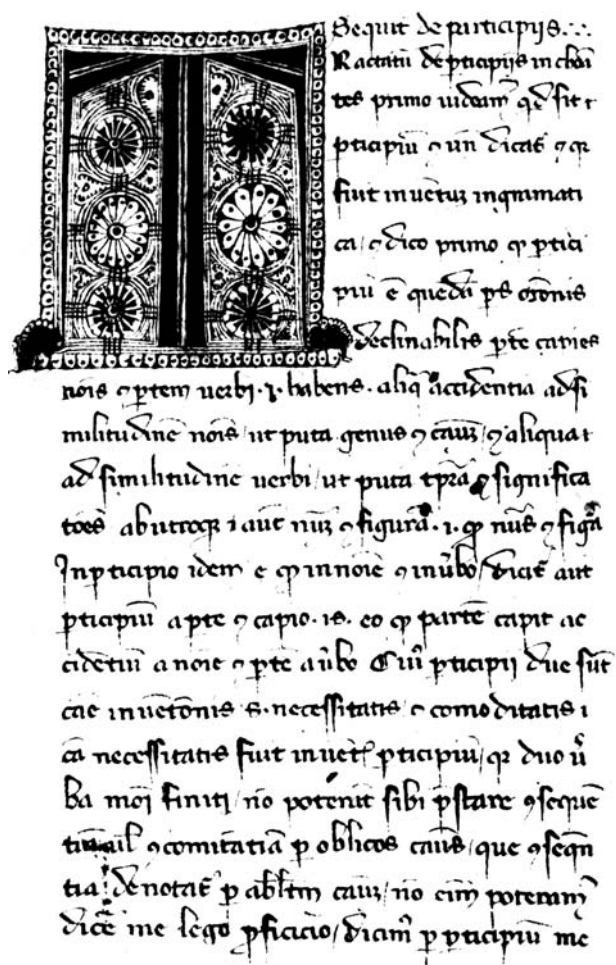 Sequit̃ de participijs.
Ractatũ de ꝑticipijs in choã
tes primo uideam̃ qd̃ sit
ꝑticipiũ ⁊ un̄ dicat̃ ⁊ qr
fiut inuẽtuȝ in grãmati
ca / ⁊ dico primo ꝙ ꝑtici
piũ ẽ quedã ps̃ or̃onis
declinabilis ꝑtẽ capies
nois̃ ⁊ ꝑtem uerbi .i. habens. aliq̃ accidentia ad si
militudinẽ nois̃ / ut puta genus ⁊ cauȝ / ⁊ aliqua
ad similitudinẽ uerbi / ut puta tp̃ra ⁊ significa
tões ab utroqȝ aut̃ nũȝ ⁊ figurã .i. ꝙ nũs ⁊ figa̾
In ꝑticipio idem ẽ ꝙ in noĩe ⁊ in ũbo / dicit̃ aut̃
ꝑticipiũ a ꝑte ⁊ capio .is. eo ꝙ partẽ capit ac
cidẽtiũ a noĩe ⁊ ꝑtẽ a ũbo Cui̾ ꝑticipij due sũt
cãe inuẽtõnis s. necessitatis ⁊ comoditatis
cã necessitatis fiut inuẽt̃ ꝑticipiũ / qr duo ũ
ba moĩ finiti / nõ poterãt sibi p̃stare ꝯsequẽ
tiam ul̃ ꝯcomitãtiã ꝑ oblicos cãus / que ꝯseqñ
tia denotat̃ ꝑ abl̃tm̃ cauȝ / nõ eĩm poteram̃
dicẽ me lego ꝓficicio / dicim̃ ꝑ ꝑticipiũ me